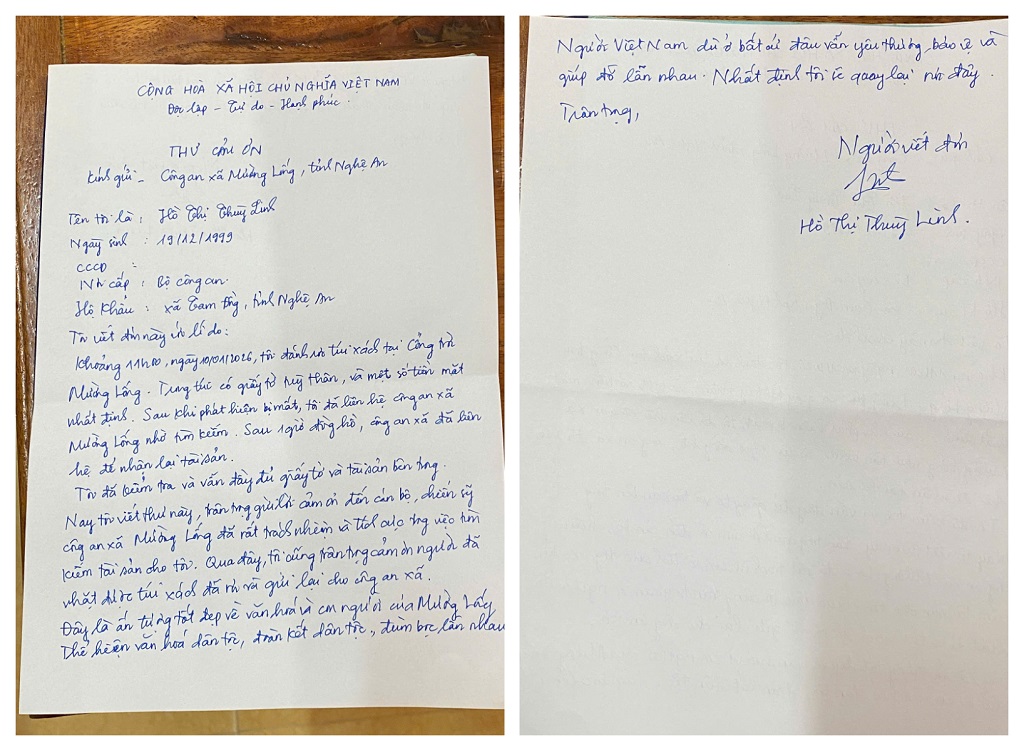 CỘNG HOÀ XÃ HỘI CHỦ NGHĨA VIỆT NAM
Độc lập - Tự do - Hạnh phúc.
THƯ CẢM ƠN
Kính gửi - Công an xã Mường Lống, tỉnh Nghệ An
Tên tôi là : Hồ Thị Thuỳ Linh
Ngày sinh : 19/12/1999
CCCD :
Nơi cấp : Bộ công an.
Hộ khẩu : xã Tam Đồng, tỉnh Nghệ An
Tôi viết đơn này với lí do:
Khoảng 11h00, ngày 10/01/2026, tôi đánh rơi túi xách tại Cổng trời
Mường Lống. Trong túi có giấy tờ tuỳ thân, và một số tiền mặt
nhất định. Sau khi phát hiện bị mất, tôi đã liên hệ công an xã
Mường Lống nhờ tìm kiếm. Sau 1 giờ đồng hồ, công an xã đã liên
hệ để nhận lại tài sản.
Tôi đã kiểm tra và vẫn đầy đủ giấy tờ và tài sản bên trong.
Nay tôi viết thư này, trân trọng gửi lời cảm ơn đến cán bộ, chiến sỹ
công an xã Mường Lống đã rất trách nhiệm và tích cực trong việc tìm
kiếm tài sản cho tôi. Qua đây, tôi cũng trân trọng cảm ơn người đã
nhặt được túi xách đã và gửi lại cho công an xã.
Đây là ấn tượng tốt đẹp về văn hoá và con người của Mường
Thể hiện văn hoá dân tộc, đoàn kết dân tộc, đùm bọc lẫn nhau
Người Việt Nam dù ở bất cứ đâu vẫn yêu thương, bảo vệ và
giúp đỡ lẫn nhau. Nhất định tôi sẽ quay lại nơi đây.
Trân trọng,
Người viết đơn
Hồ Thị Thuỳ Linh.